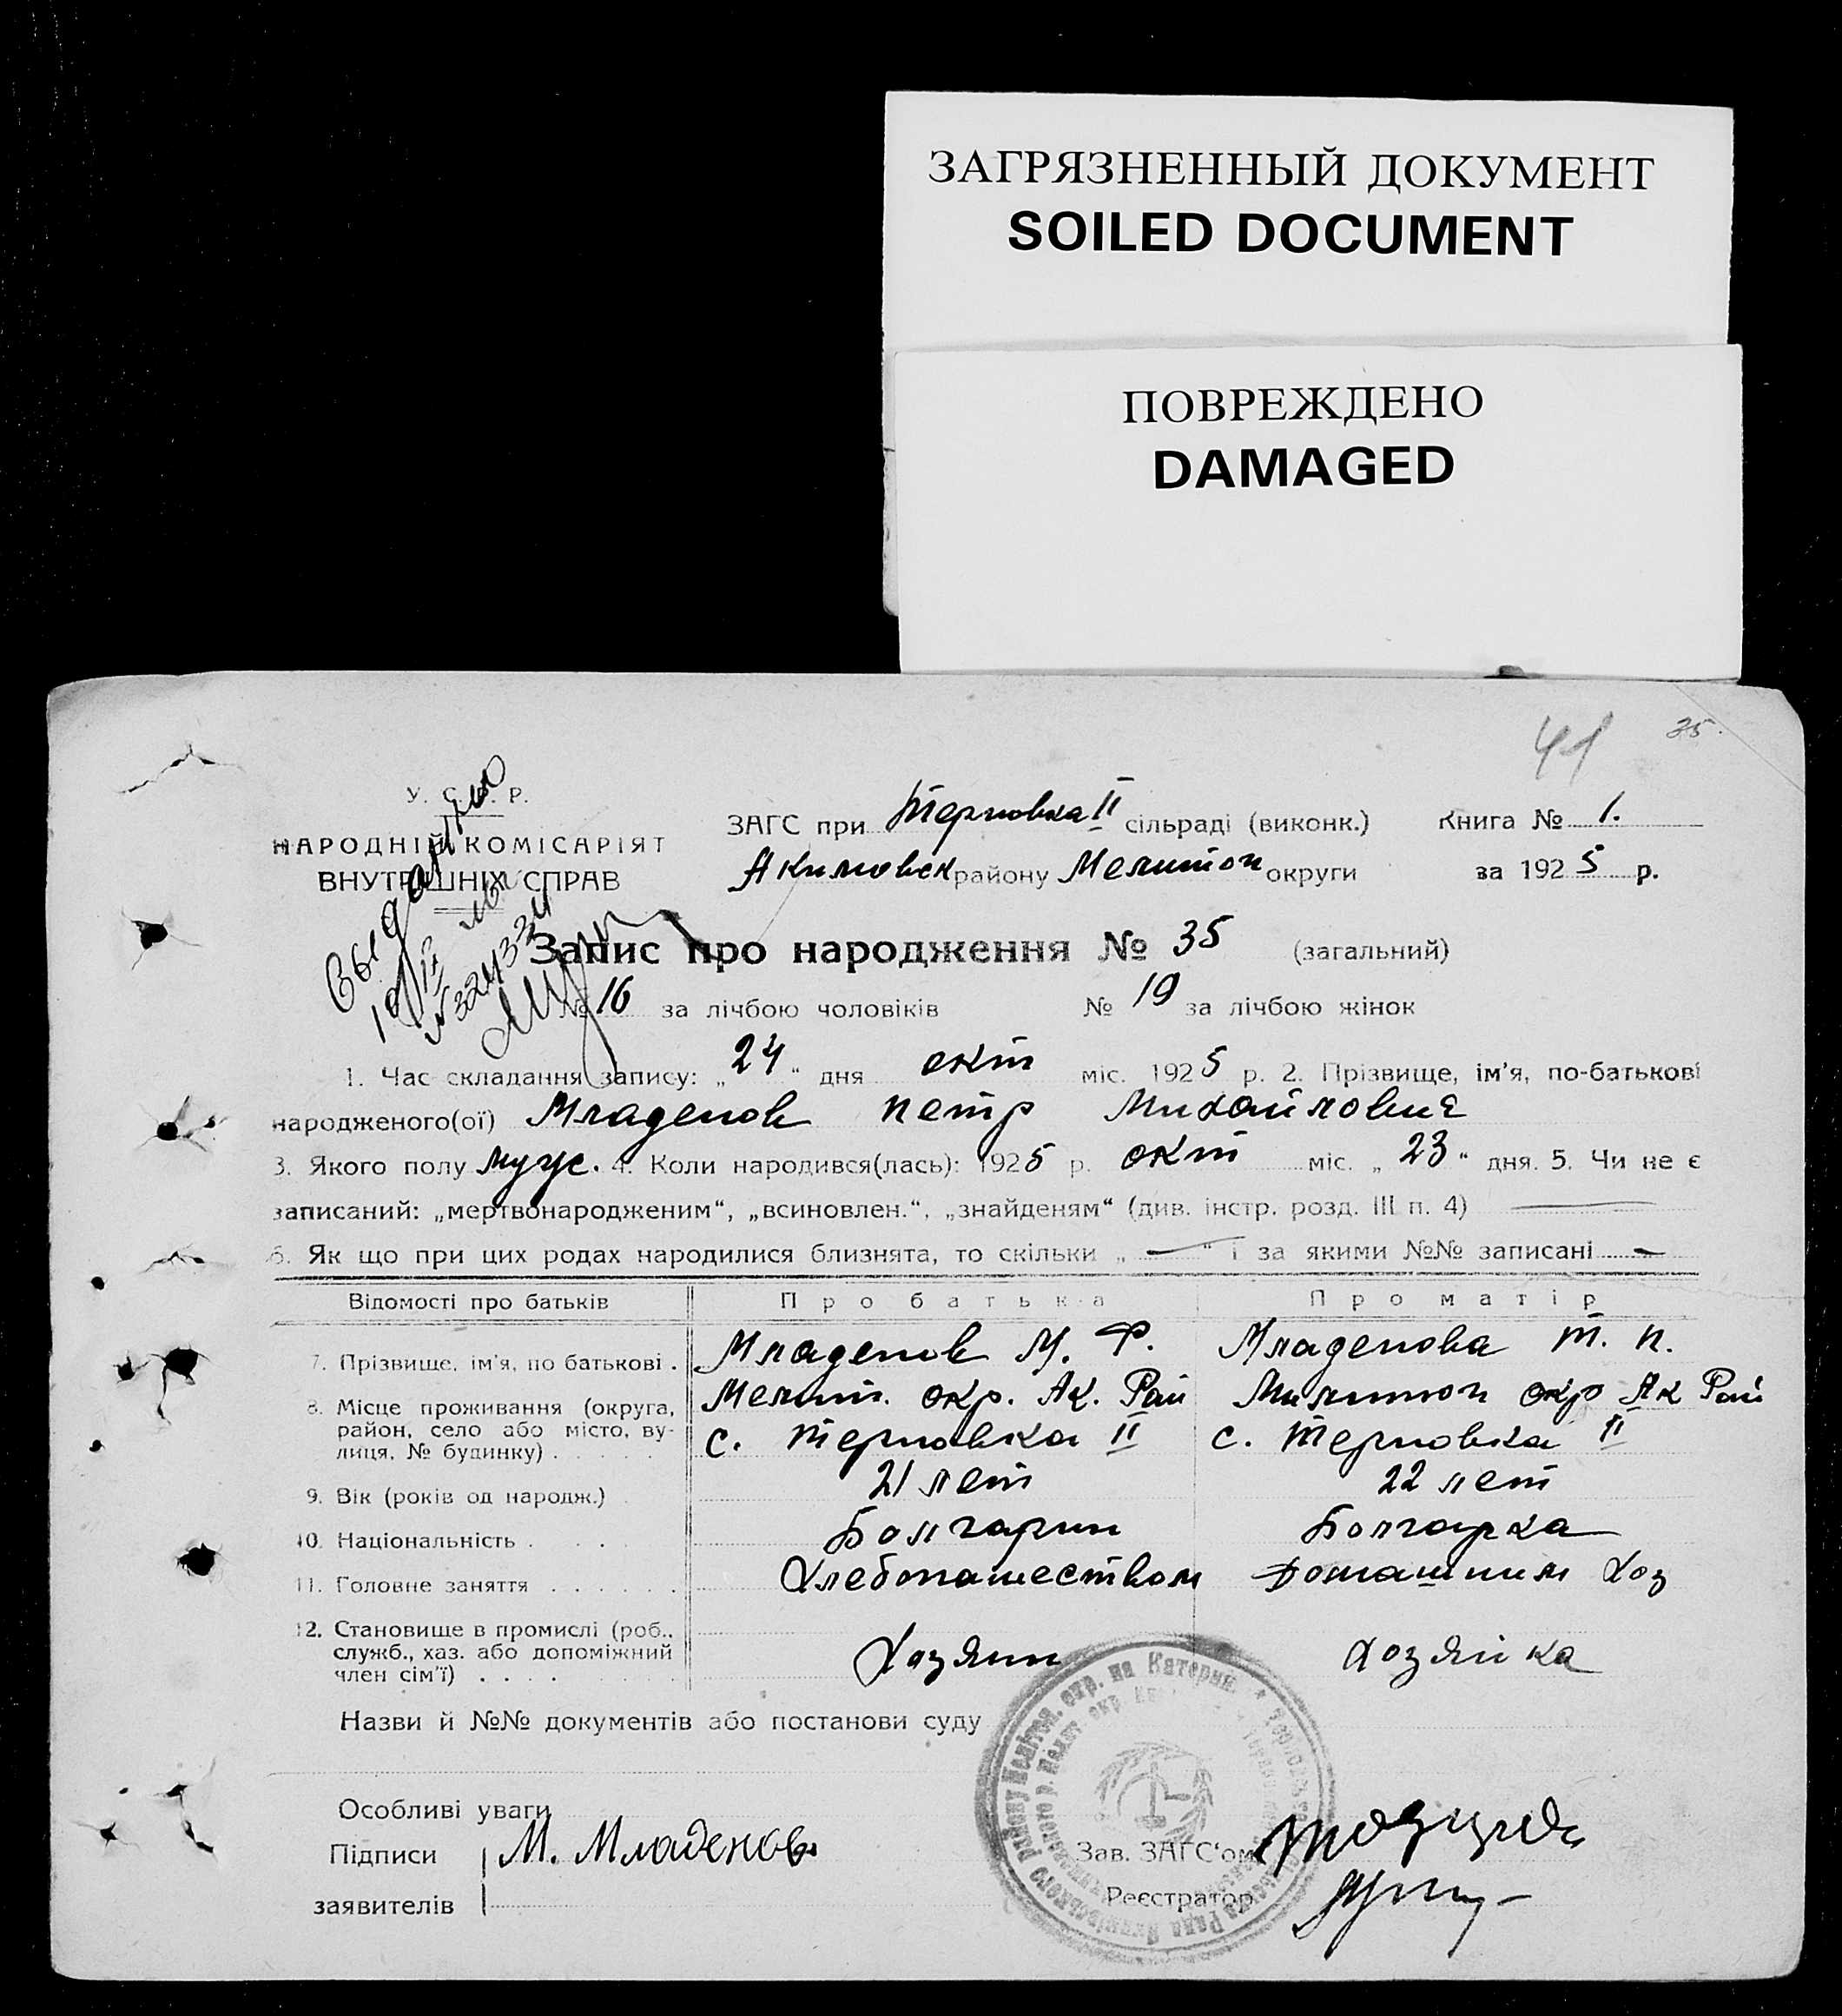 ЗАГРЯЗНЕННЫЙ ДОКУМЕНТ
SOILED DOCUMENT
ПОВРЕЖДЕНО
DAMAGED
41 35.
У. С. Р.
НАРОДНІЙ КОМІСАРІЯТ
ВНУТРІШНІХ СПРАВ
ЗАГС при Терновка II сільраді (виконк.) Книга № 1.
Акимовск району Мелитоп округи за 1925 р.
Запис про народження № 35 (загальний)
№ 16 за лічбою чоловіків № 19 за лічбою жінок
1. Час складання запису: „24" дня окт міс. 1925 р. 2. Прізвище, ім'я, по-батькові
народженого(ої) Младенов Петр Михайлович
3. Якого полу муж. 4. Коли народився(лась): 1925 р. окт міс. „23" дня. 5. Чи не є
записаний: „мертвонародженим", „всиновлен.", „знайденям" (див. інстр. розд. III п. 4) —
6. Як що при цих родах народилися близнята, то скільки „—" і за якими №№ записані —
Відомості про батьків Про батька Про матір
7. Прізвище, ім'я, по батькові . Младенов М. Ф. Младенова Т. П.
8. Місце проживання (округа, Мелит. окр. Ак. Рай Милитоп окр Ак Рай
район, село або місто, ву-
лиця, № будинку) . . . . . с. Терновка II с. Терновка II
9. Вік (років од народж.) 21 лет 22 лет
10. Національність . . . Болгарин Болгарка
11. Головне заняття . . . . . . Хлебопашеством Домашним Хоз
12. Становище в промислі (роб.,
служб., хаз. або допоміжний Хозяин Хозяйка
член сім'ї) . . . .
Назви й №№ документів або постанови суду
Особливі уваги
Підписи М. Младенов Зав. ЗАГС'ом
заявителів Реєстратор